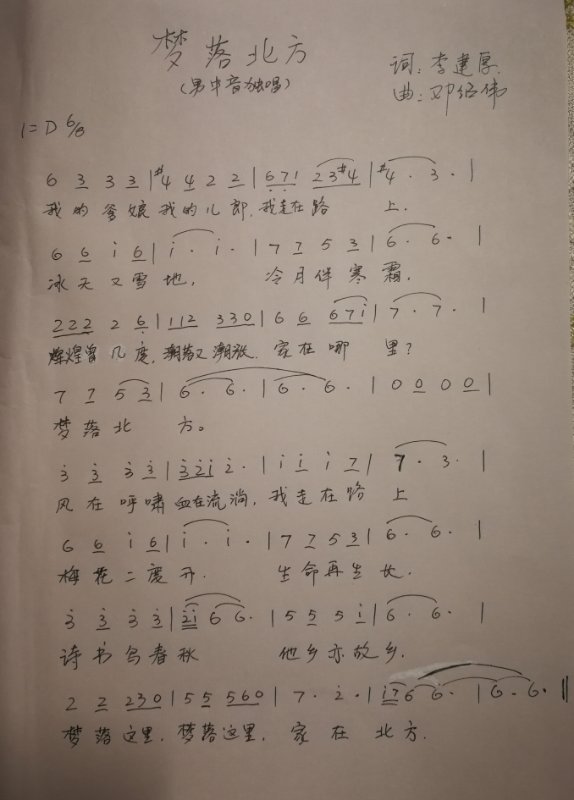 梦落北方
(男中音独唱)
词:李建厚
曲:邓纪伟
1=D 6/8
6 3 3 3 | #4 4 2 2 | 6 7 1 2 3 #4 | #4 · 3 · |
我的爹娘我的儿郎,我走在路 上.
6 6 i 6 | i · i · | 7 7 5 3 | 6 · 6 · |
冰天又雪地, 冷月伴寒霜.
2 2 2 2 6 | 1 1 2 3 3 0 | 6 6 6 7 i | 7 · 7 · |
辉煌曾几度,潮落又潮涨.家在哪 里?
7 7 5 3 | 6 · 6 · | 6 · 6 · | 0 0 0 0 |
梦落北 方。
3 3 3 3 | 3 2 i 2 · | i i i 7 | 7 · 3 · |
风在呼啸血在流淌,我走在路 上
6 6 i 6 | i · i · | 7 7 5 3 | 6 · 6 · |
梅花二度开. 生命再生长.
3 3 3 3 | 2 i 6 6 · | 5 5 5 i | 6 · 6 · |
诗书写春秋 他乡亦故乡.
2 2 2 3 0 | 5 5 5 6 0 | 7 · 2 · | i 7 6 6 · | 6 · 6 · ‖
梦落这里.梦落这里.家在 北方.